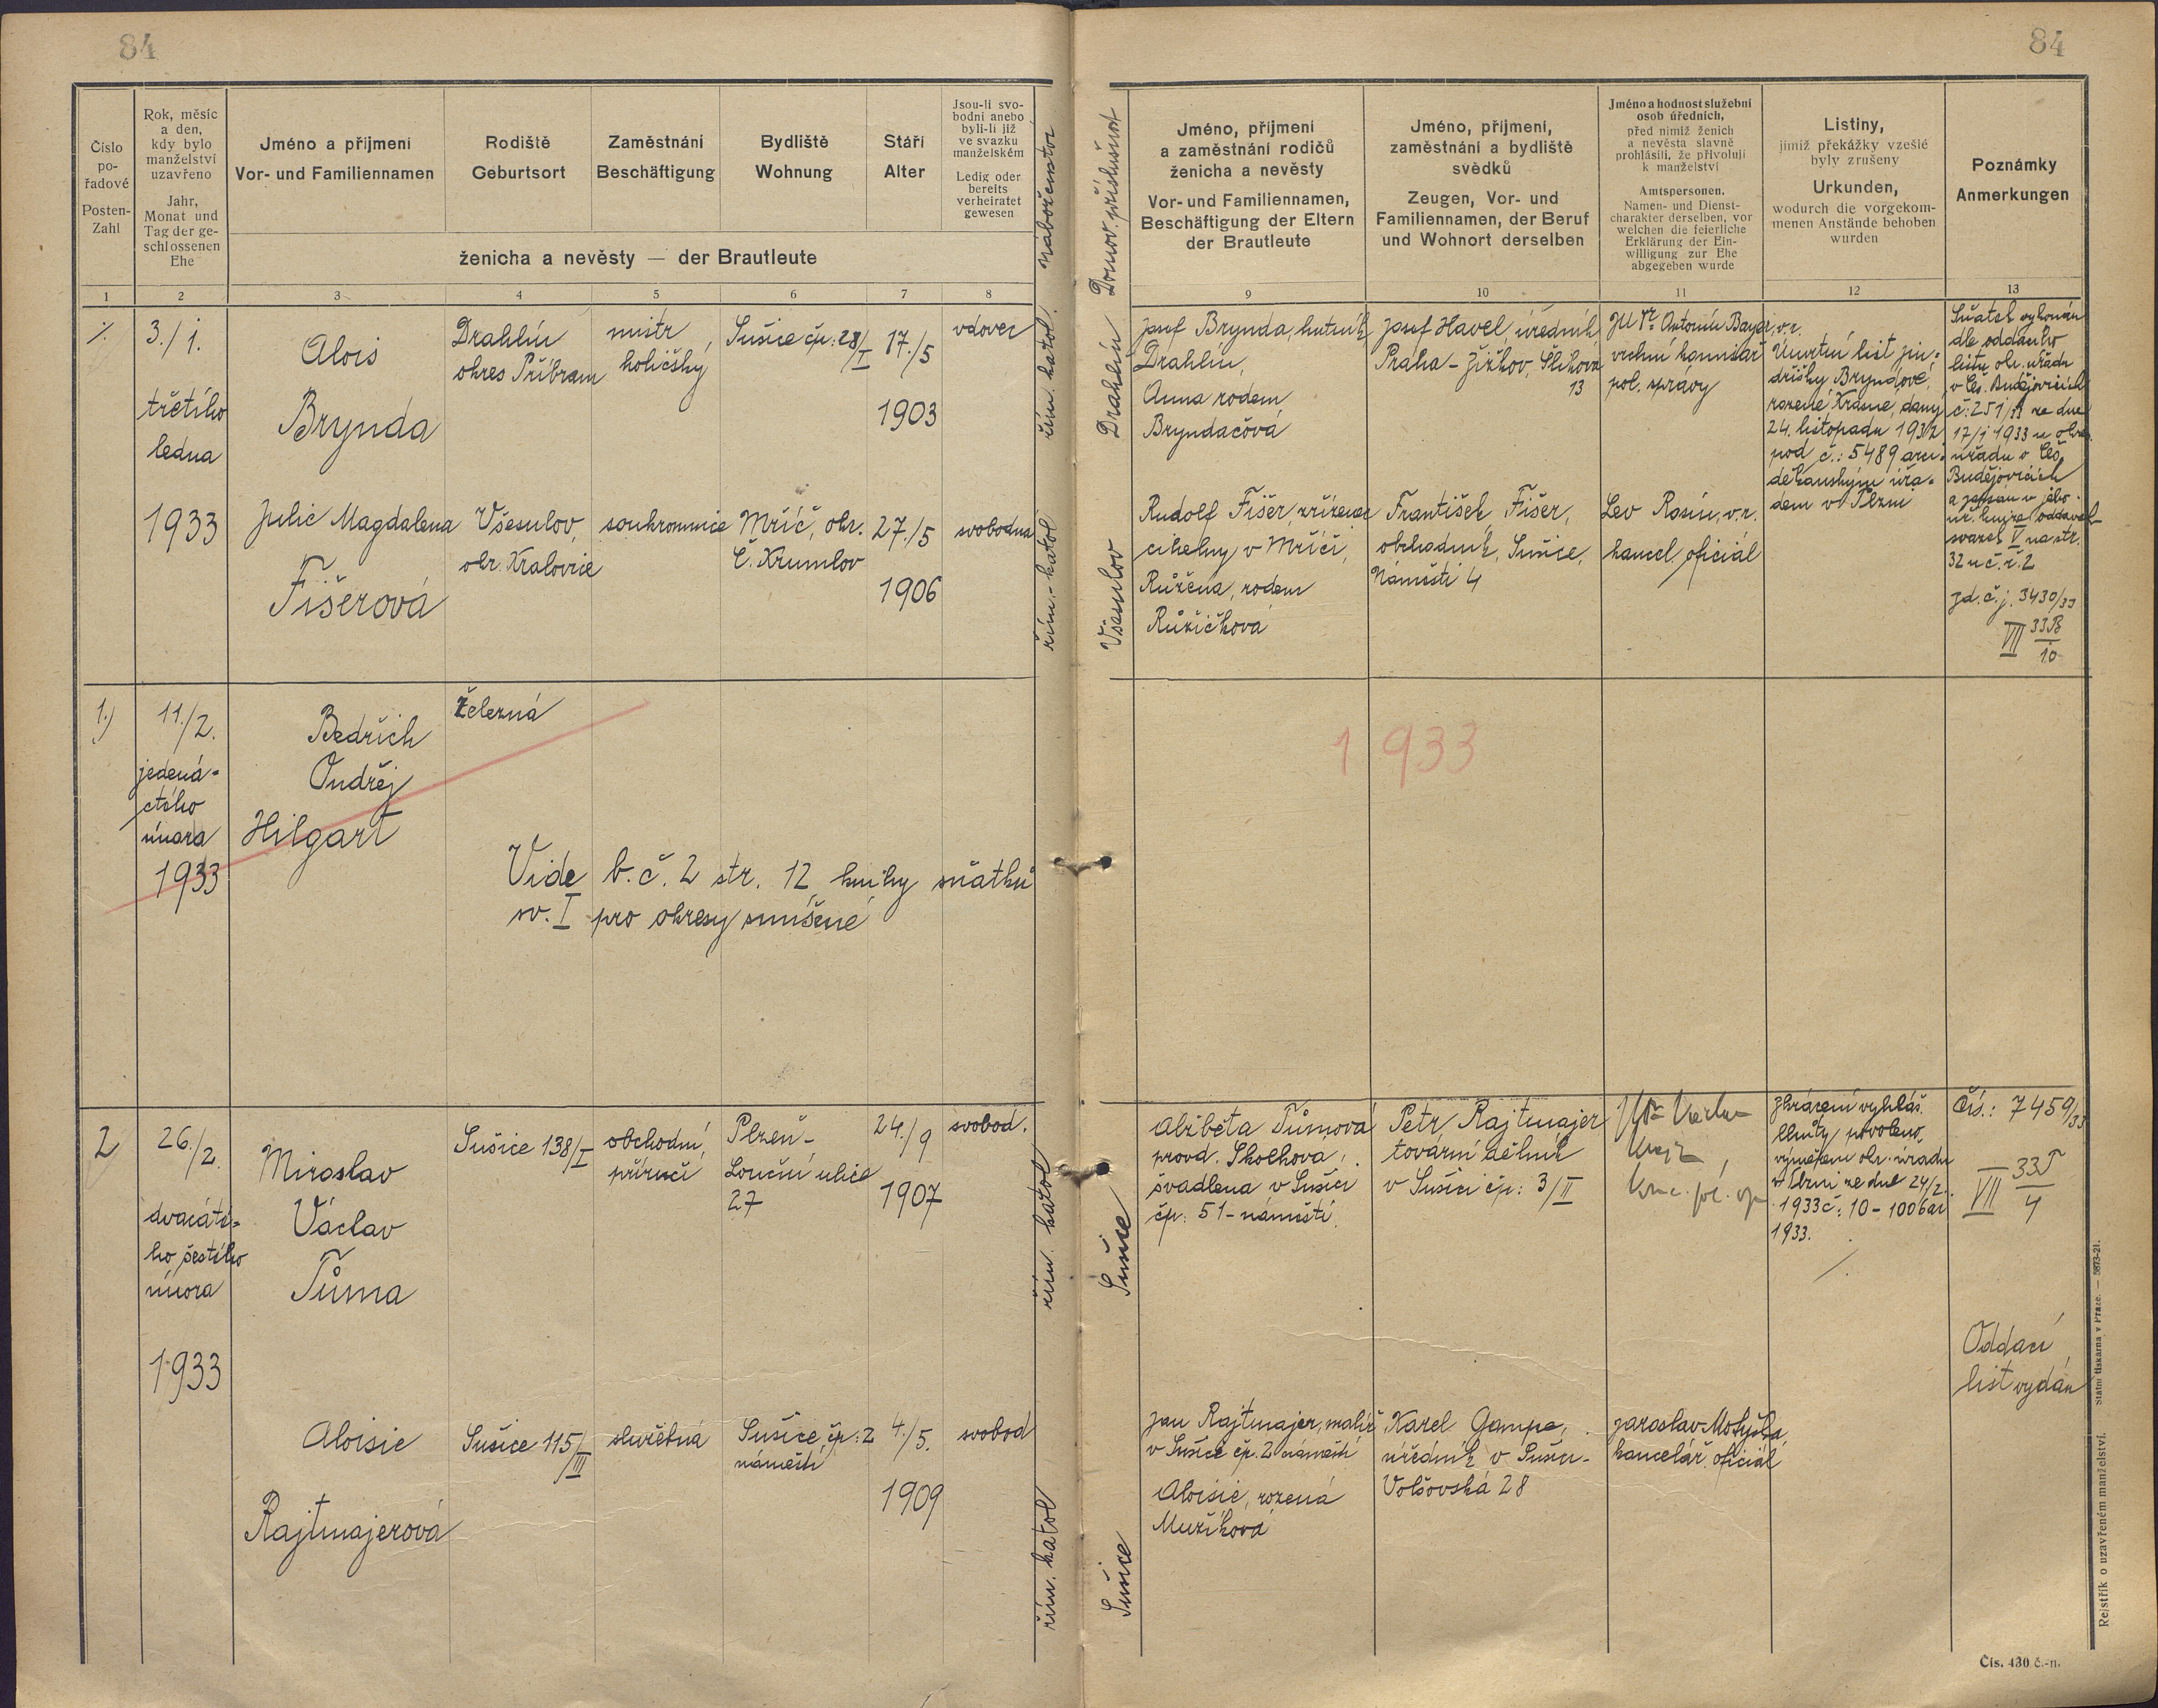 84
84
Číslo
po-
řadové
Posten-
Zahl
Rok, měsíc
a den,
kdy bylo
manželství
uzavřeno
Jahr,
Monat und
Tag der ge-
schlossenen
Ehe
Jméno a příjmení
Vor- und Familiennamen
Rodiště
Geburtsort
Zaměstnání
Beschäftigung
Bydliště
Wohnung
Stáří
Alter
Jsou-li svo-
bodni anebo
byli-li již
ve svazku
manželském
Ledig oder
bereits
verheiratet
gewesen
ženicha a nevěsty — der Brautleute
náboženství
Domov. příslušnost
Jméno, příjmení
a zaměstnání rodičů
ženicha a nevěsty
Vor- und Familiennamen,
Beschäftigung der Eltern
der Brautleute
Jméno, příjmení,
zaměstnání a bydliště
svědků
Zeugen, Vor- und
Familiennamen, der Beruf
und Wohnort derselben
Jméno a hodnost služební
osob úředních,
před nimiž ženich
a nevěsta slavně
prohlásili, že přivolují
k manželství
Amtspersonen,
Namen- und Dienst-
charakter derselben, vor
welchen die feierliche
Erklärung der Ein-
willigung zur Ehe
abgegeben wurde
Listiny,
jimiž překážky vzešlé
byly zrušeny
Urkunden,
wodurch die vorgekom-
menen Anstände behoben
wurden
Poznámky
Anmerkungen
1 2 3 4 5 6 7 8 9 10 11 12 13
3./1.
třetího
ledna
1933
Alois
Brynda
Drahlín
okres Příbram
mistr
holičský
Sušice čp: 28/I
17./5
1903
vdovec
řím. katol.
Drahlín
Josef Brynda, hutník
Drahlín,
Anna rodem
Bryndačová
Josef Havel, úředník,
Praha - Žižkov, Šlikova
13
JUDr. Antonín Bayer, v.r.
vrchní komisař
pol. správy
Úmrtní list Jin-
dřišky Bryndové,
rozené Krásné, daný
24. listopadu 1932
pod č.: 5489 arci-
děkanským úřa-
dem v Plzni
Sňatek vykonán
dle oddacího
listu okr. úřadu
v Čes. Budějovicích
č: 251/33 ze dne
17/1 1933 u okr.
úřadu v Čes.
Budějovicích
a zapsán v jeho
úř. knize oddavek
svazek V na str.
32 u č. ř. 2
zd. č. j. 3430/33
VII 33B/10
Julie Magdalena
Fišerová
Všesulov,
okr. Kralovice
soukromnice
Mříč, okr.
Č. Krumlov
27./5
1906
svobodna
řím.- katol
Všesulov
Rudolf Fišer, zřízenec
cihelny v Mříči,
Růžena, rodem
Růžičková
František Fišer,
obchodník, Sušice,
Náměstí 4
Lev Rosín, v.r.
kancel. oficiál
1.)
11./2.
jedená-
ctého
února
1933
Bedřich
Ondřej
Hilgart
Železná
Vide b. č. 2 str. 12 knihy sňatků
sv. I pro okresy smíšené
1933
2
26./2.
dvacáté-
ho šestého
února
1933
Miroslav
Václav
Tůma
Sušice 138/I
obchodní
příručí
Plzeň -
Louční ulice
27
24./9
1907
svobod.
řím. katol
Sušice
Alžběta Tůmová
provd. Skolhova,
švadlena v Sušici
čp: 51 - náměstí.
Petr Rajtmajer
tovární dělník
v Sušici čp: 3/II
Zkrácení vyhláš.
lhůty povoleno,
výměrem okr. úřadu
v Plzni ze dne 24/2.
1933 č: 10 - 1006 ai
1933.
Čís.: 7459/33
VII 33T/4
Oddací
list vydán
Aloisie
Rajtmajerová
Sušice 115/III
služebná
Sušice čp: 2
náměstí
4./5.
1909
svobod
řím. katol
Sušice
Jan Rajtmajer, malíř
v Sušice čp. 2 náměstí
Aloisie, rozená
Mužíková
Karel Gampe,
úředník v Sušici -
Volšovská 28
Jaroslav Motyčka,
kancelář. oficiál
Rejstřík o uzavřeném manželství. Státní tiskárna v Praze. — 5873-21.
Čís. 430 č.-n.